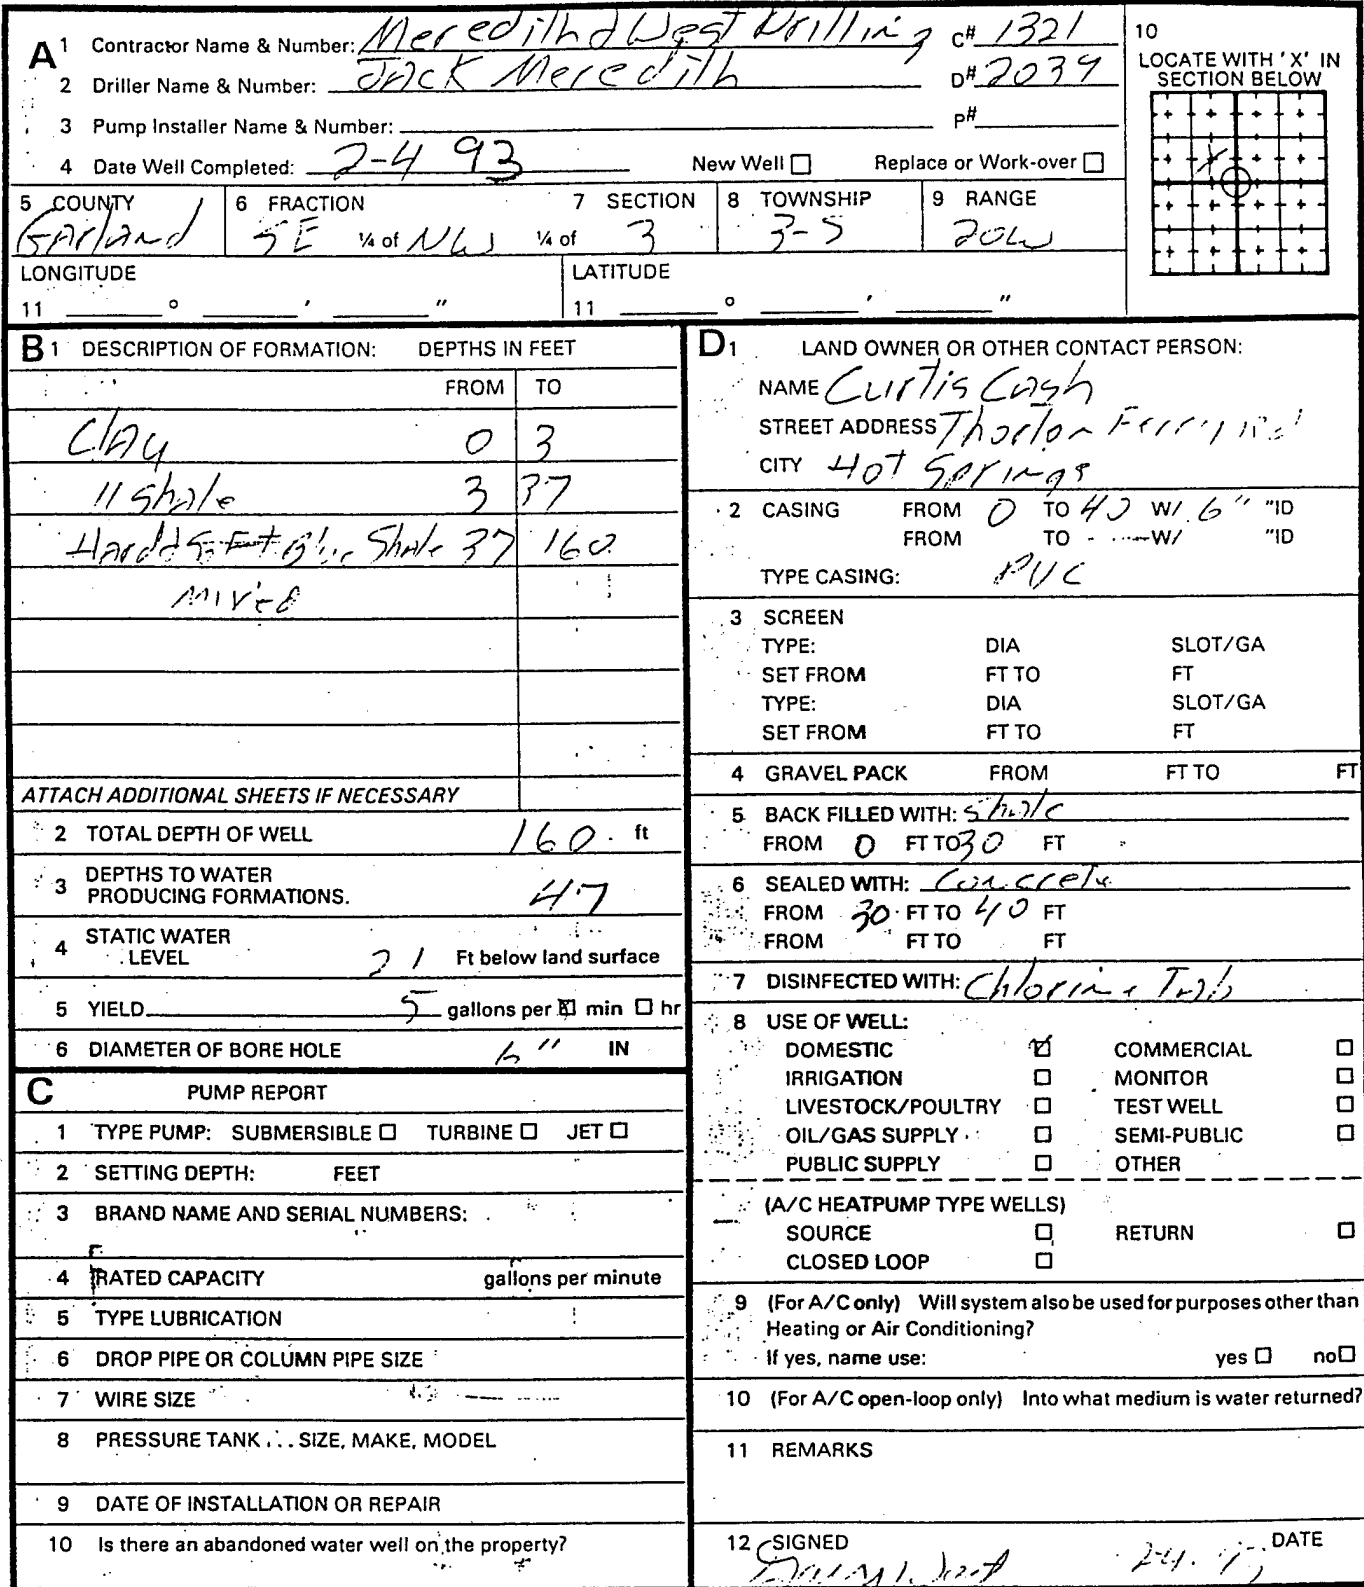 A 1 Contractor Name & Number: Meredith & West Drilling C# 1321
2 Driller Name & Number: Jack Meredith D# 2039
3 Pump Installer Name & Number: P#
4 Date Well Completed: 2-4 93 New Well ☐ Replace or Work-over ☐
10
LOCATE WITH 'X' IN
SECTION BELOW
5 COUNTY 6 FRACTION 7 SECTION 8 TOWNSHIP 9 RANGE
Garland SE ¼ of NW ¼ of 3 3-S 20W
LONGITUDE LATITUDE
11 ° ' " 11 ° ' "
B 1 DESCRIPTION OF FORMATION: DEPTHS IN FEET
FROM TO
Clay 0 3
11 Shale 3 37
Hard & Soft Blue Shale 37 160
mixed
ATTACH ADDITIONAL SHEETS IF NECESSARY
2 TOTAL DEPTH OF WELL 160 ft
3 DEPTHS TO WATER
PRODUCING FORMATIONS. 47
4 STATIC WATER
LEVEL 21 Ft below land surface
5 YIELD 5 gallons per ☒ min ☐ hr
6 DIAMETER OF BORE HOLE 6" IN
C PUMP REPORT
1 TYPE PUMP: SUBMERSIBLE ☐ TURBINE ☐ JET ☐
2 SETTING DEPTH: FEET
3 BRAND NAME AND SERIAL NUMBERS:
4 RATED CAPACITY gallons per minute
5 TYPE LUBRICATION
6 DROP PIPE OR COLUMN PIPE SIZE
7 WIRE SIZE
8 PRESSURE TANK . . . SIZE, MAKE, MODEL
9 DATE OF INSTALLATION OR REPAIR
10 Is there an abandoned water well on the property?
D 1 LAND OWNER OR OTHER CONTACT PERSON:
NAME Curtis Cash
STREET ADDRESS Thorlon Ferry Rd
CITY Hot Springs
2 CASING FROM 0 TO 40 W/ 6" "ID
FROM TO W/ "ID
TYPE CASING: PVC
3 SCREEN
TYPE: DIA SLOT/GA
SET FROM FT TO FT
TYPE: DIA SLOT/GA
SET FROM FT TO FT
4 GRAVEL PACK FROM FT TO FT
5 BACK FILLED WITH: Shale
FROM 0 FT TO 30 FT
6 SEALED WITH: Concrete
FROM 30 FT TO 40 FT
FROM FT TO FT
7 DISINFECTED WITH: Chlorine Tab
8 USE OF WELL:
DOMESTIC ☑ COMMERCIAL ☐
IRRIGATION ☐ MONITOR ☐
LIVESTOCK/POULTRY ☐ TEST WELL ☐
OIL/GAS SUPPLY ☐ SEMI-PUBLIC ☐
PUBLIC SUPPLY ☐ OTHER
(A/C HEATPUMP TYPE WELLS)
SOURCE ☐ RETURN ☐
CLOSED LOOP ☐
9 (For A/C only) Will system also be used for purposes other than
Heating or Air Conditioning?
If yes, name use: yes ☐ no ☐
10 (For A/C open-loop only) Into what medium is water returned?
11 REMARKS
12 SIGNED DATE